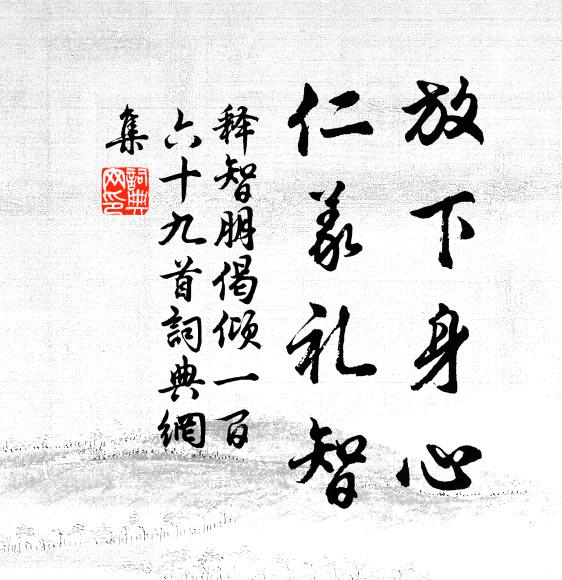 放下身心
仁义礼智
释智朋偈倾一百
六十九首詞典網
集
詞典
网印